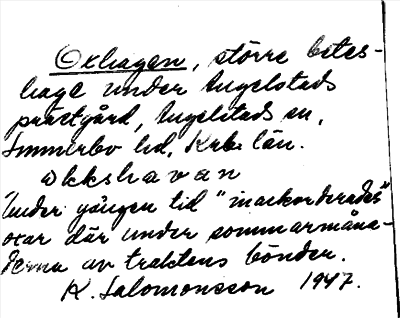 Oxhagen, större betes-
hage under Angelstads
prästgård, Angelstads sn,
Sunnerbo hd, Krb. län.
okkshavan
Under gången tid "inackorderades"
oxar där under sommarmåna-
derna av traktens bönder.
K. Salomonsson 1947.